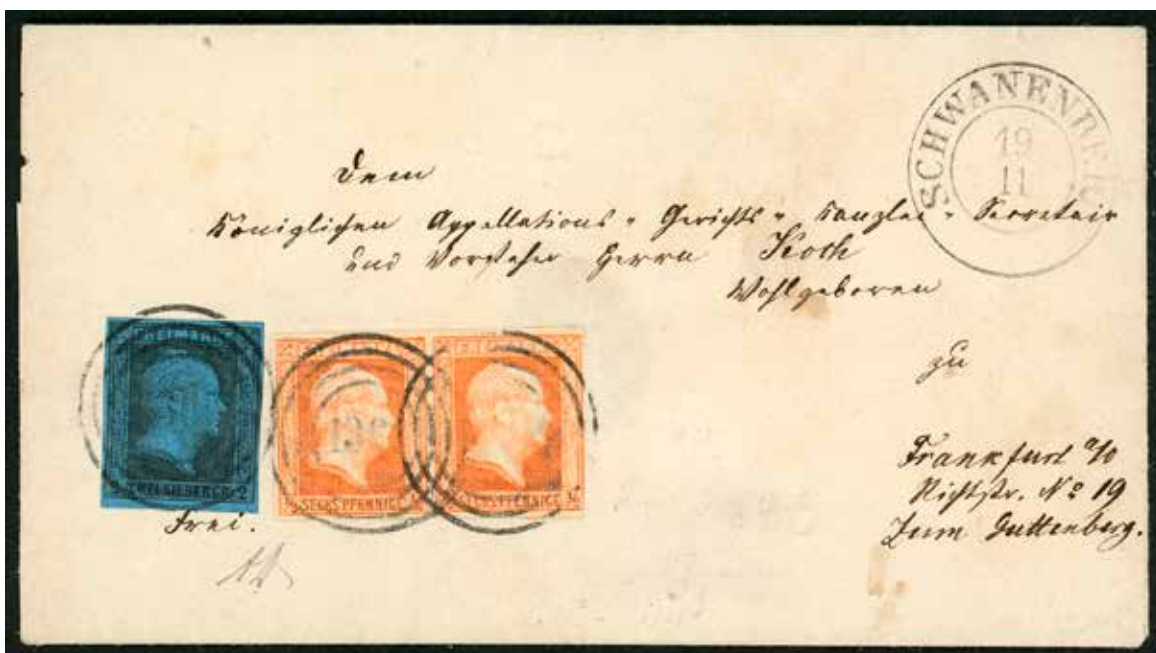 SCHWANENBECK
19
11
Dem
Königlichen Appellations- Gerichts- Kanzlei- Secretair
und Vorsteher Herrn Koch
Wohlgeboren
zu
Frankfurt a/o
Richtstr. No 19
Zum Guttenberg.
FREIMARKE
2 ZWEI SILBERGR. 2
SECHS PFENNIGE
SECHS PFENNIGE
Frei.